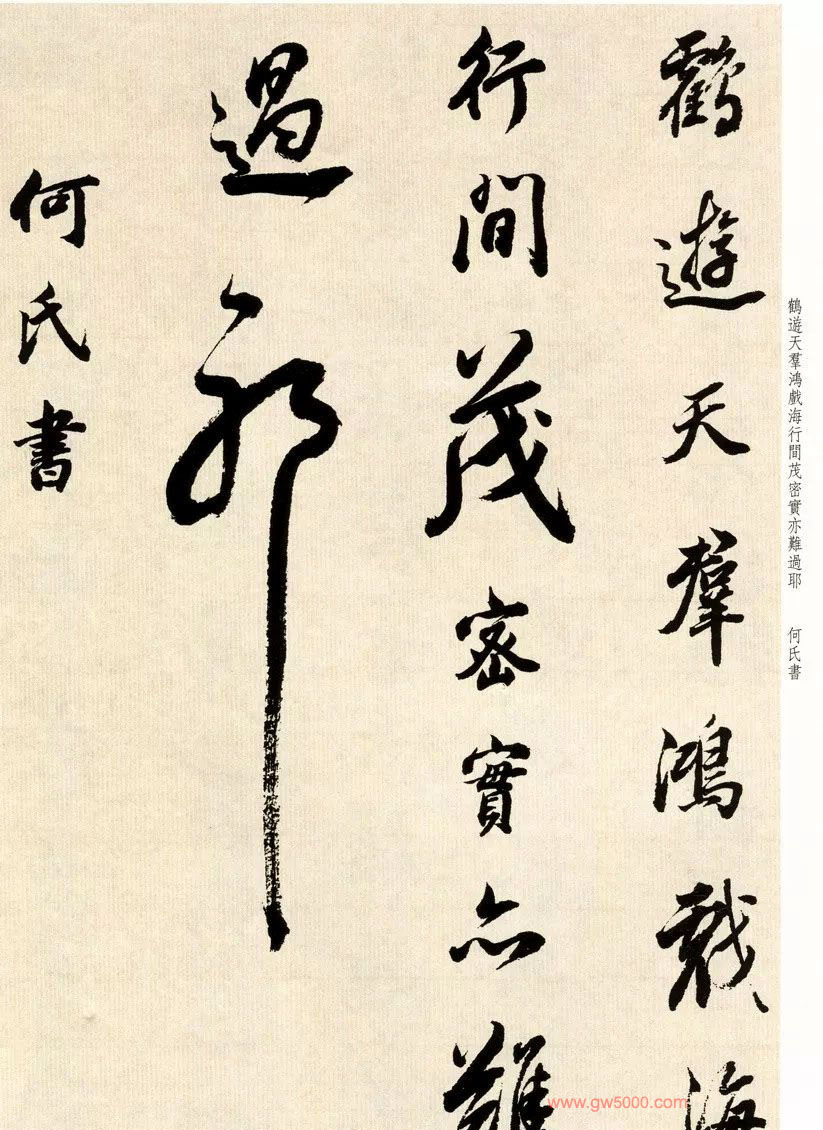 鶴遊天羣鴻戲海
行間茂密實亦難
過耶
何氏書
鶴遊天羣鴻戲海行間茂密實亦難過耶 何氏書
www.gw5000.com